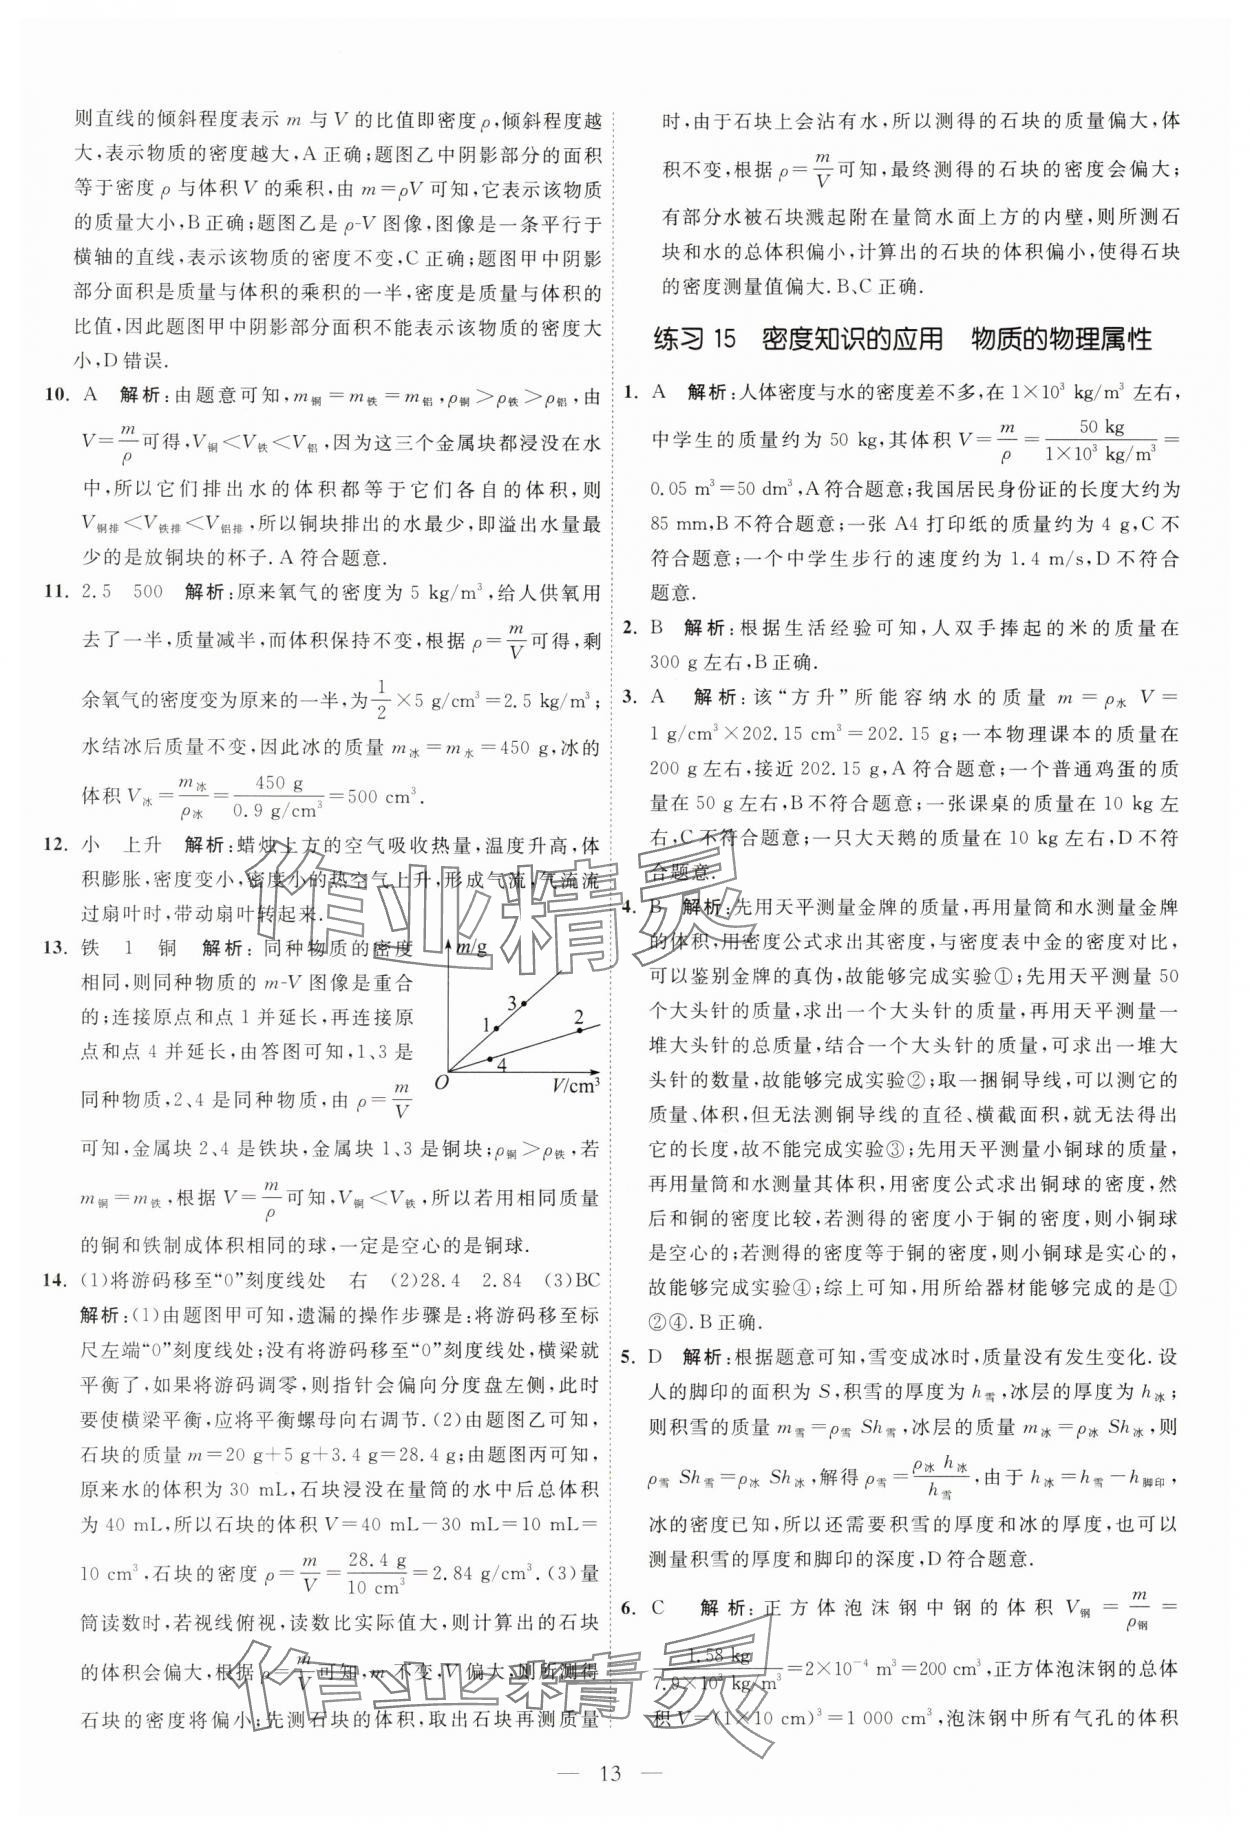 则直线的倾斜程度表示 m 与 V 的比值即密度 ρ,倾斜程度越
大,表示物质的密度越大,A 正确;题图乙中阴影部分的面积
等于密度 ρ 与体积 V 的乘积,由 m=ρV 可知,它表示该物质
的质量大小,B 正确;题图乙是 ρ-V 图像,图像是一条平行于
横轴的直线,表示该物质的密度不变,C 正确;题图甲中阴影
部分面积是质量与体积的乘积的一半,密度是质量与体积的
比值,因此题图甲中阴影部分面积不能表示该物质的密度大
小,D 错误.
10. A 解析:由题意可知,m铜=m铁=m铝,ρ铜>ρ铁>ρ铝,由
V=m/ρ可得,V铜<V铁<V铝,因为这三个金属块都浸没在水
中,所以它们排出水的体积都等于它们各自的体积,则
V铜排<V铁排<V铝排,所以铜块排出的水最少,即溢出水量最
少的是放铜块的杯子.A 符合题意.
11. 2.5 500 解析:原来氧气的密度为 5 kg/m³,给人供氧用
去了一半,质量减半,而体积保持不变,根据 ρ=m/V可得,剩
余氧气的密度变为原来的一半,为1/2×5 g/cm³=2.5 kg/m³;
水结冰后质量不变,因此冰的质量 m冰=m水=450 g,冰的
体积 V冰=m冰/ρ冰=450 g/0.9 g/cm³=500 cm³.
12. 小 上升 解析:蜡烛上方的空气吸收热量,温度升高,体
积膨胀,密度变小,密度小的热空气上升,形成气流,气流流
过扇叶时,带动扇叶转起来.
13. 铁 1 铜 解析:同种物质的密度
相同,则同种物质的 m-V 图像是重合
的;连接原点和点 1 并延长,再连接原
点和点 4 并延长,由答图可知,1、3 是
同种物质,2、4 是同种物质,由 ρ=m/V
m/g
3
1
2
4
O
V/cm³
可知,金属块 2、4 是铁块,金属块 1、3 是铜块;ρ铜>ρ铁,若
m铜=m铁,根据 V=m/ρ可知,V铜<V铁,所以若用相同质量
的铜和铁制成体积相同的球,一定是空心的是铜球.
14. (1)将游码移至“0”刻度线处 右 (2)28.4 2.84 (3)BC
解析:(1)由题图甲可知,遗漏的操作步骤是:将游码移至标
尺左端“0”刻度线处;没有将游码移至“0”刻度线处,横梁就
平衡了,如果将游码调零,则指针会偏向分度盘左侧,此时
要使横梁平衡,应将平衡螺母向右调节.(2)由题图乙可知,
石块的质量 m=20 g+5 g+3.4 g=28.4 g;由题图丙可知,
原来水的体积为 30 mL,石块浸没在量筒的水中后总体积
为 40 mL,所以石块的体积 V=40 mL-30 mL=10 mL=
10 cm³,石块的密度 ρ=m/V=28.4 g/10 cm³=2.84 g/cm³.(3)量
筒读数时,若视线俯视,读数比实际值大,则计算出的石块
的体积会偏大,根据 ρ=m/V可知,m 不变,V 偏大,则所测得
石块的密度将偏小;先测石块的体积,取出石块再测质量
时,由于石块上会沾有水,所以测得的石块的质量偏大,体
积不变,根据 ρ=m/V可知,最终测得的石块的密度会偏大;
有部分水被石块溅起附在量筒水面上方的内壁,则所测石
块和水的总体积偏小,计算出的石块的体积偏小,使得石块
的密度测量值偏大.B、C 正确.
练习 15 密度知识的应用 物质的物理属性
1. A 解析:人体密度与水的密度差不多,在 1×10³ kg/m³ 左右,
中学生的质量约为 50 kg,其体积 V=m/ρ=50 kg/1×10³ kg/m³=
0.05 m³=50 dm³,A 符合题意;我国居民身份证的长度大约为
85 mm,B 不符合题意;一张 A4 打印纸的质量约为 4 g,C 不
符合题意;一个中学生步行的速度约为 1.4 m/s,D 不符合
题意.
2. B 解析:根据生活经验可知,人双手捧起的米的质量在
300 g 左右,B 正确.
3. A 解析:该“方升”所能容纳水的质量 m=ρ水 V=
1 g/cm³×202.15 cm³=202.15 g;一本物理课本的质量在
200 g 左右,接近 202.15 g,A 符合题意;一个普通鸡蛋的质
量在 50 g 左右,B 不符合题意;一张课桌的质量在 10 kg 左
右,C 不符合题意;一只大天鹅的质量在 10 kg 左右,D 不符
合题意.
4. B 解析:先用天平测量金牌的质量,再用量筒和水测量金牌
的体积,用密度公式求出其密度,与密度表中金的密度对比,
可以鉴别金牌的真伪,故能够完成实验①;先用天平测量 50
个大头针的质量,求出一个大头针的质量,再用天平测量一
堆大头针的总质量,结合一个大头针的质量,可求出一堆大
头针的数量,故能够完成实验②;取一捆铜导线,可以测它的
质量、体积,但无法测铜导线的直径、横截面积,就无法得出
它的长度,故不能完成实验③;先用天平测量小铜球的质量,
再用量筒和水测量其体积,用密度公式求出铜球的密度,然
后和铜的密度比较,若测得的密度小于铜的密度,则小铜球
是空心的;若测得的密度等于铜的密度,则小铜球是实心的,
故能够完成实验④;综上可知,用所给器材能够完成的是①
②④.B 正确.
5. D 解析:根据题意可知,雪变成冰时,质量没有发生变化.设
人的脚印的面积为 S,积雪的厚度为 h雪,冰层的厚度为 h冰;
则积雪的质量 m雪=ρ雪 Sh雪,冰层的质量 m冰=ρ冰 Sh冰,则
ρ雪 Sh雪=ρ冰 Sh冰,解得 ρ雪=ρ冰 h冰/h雪,由于 h冰=h雪-h脚印,
冰的密度已知,所以还需要积雪的厚度和冰的厚度,也可以
测量积雪的厚度和脚印的深度,D 符合题意.
6. C 解析:正方体泡沫钢中钢的体积 V钢=m/ρ钢=
1.58 kg/7.9×10³ kg/m³=2×10⁻⁴ m³=200 cm³,正方体泡沫钢的总体
积 V=(1×10 cm)³=1 000 cm³,泡沫钢中所有气孔的体积
作业精灵
作业精灵
— 13 —